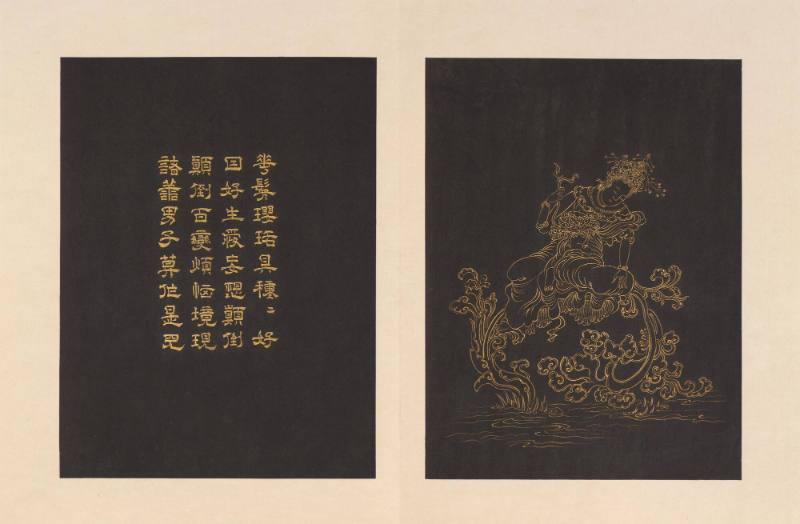 華鬘瓔珞具種〻好
因好生愛妄想顛倒
顛倒百變煩惱境現
諸善男子莫作是見